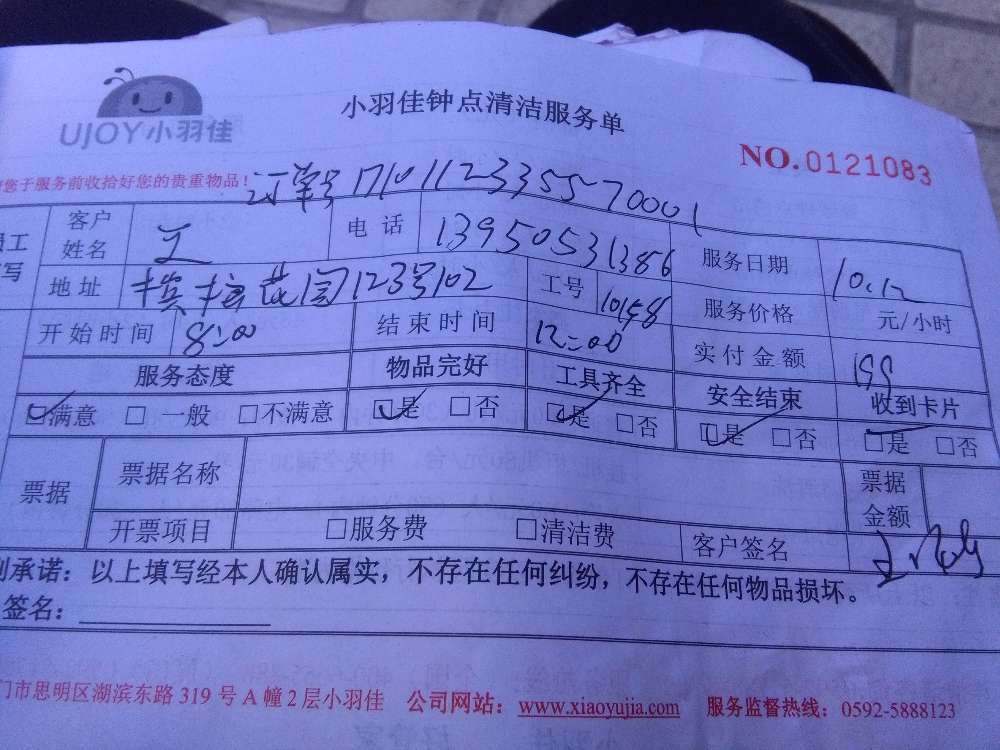 UJOY小羽佳
小羽佳钟点清洁服务单
NO.0121083
您于服务前收拾好您的贵重物品！
订单号 1710112335570001
员工 客户姓名 王 电话 13950531386 服务日期 10.12
写 地址 123号102 工号 10158 服务价格 元/小时
开始时间 8:00 结束时间 12:00 实付金额 199
服务态度 物品完好 工具齐全 安全结束 收到卡片
☑满意 □一般 □不满意 ☑是 □否 ☑是 □否 ☑是 □否 ☑是 □否
票据 票据名称 票据金额
开票项目 □服务费 □清洁费 客户签名
承诺：以上填写经本人确认属实，不存在任何纠纷，不存在任何物品损坏。
签名：
门市思明区湖滨东路 319 号 A 幢 2 层小羽佳 公司网站：www.xiaoyujia.com 服务监督热线：0592-5888123